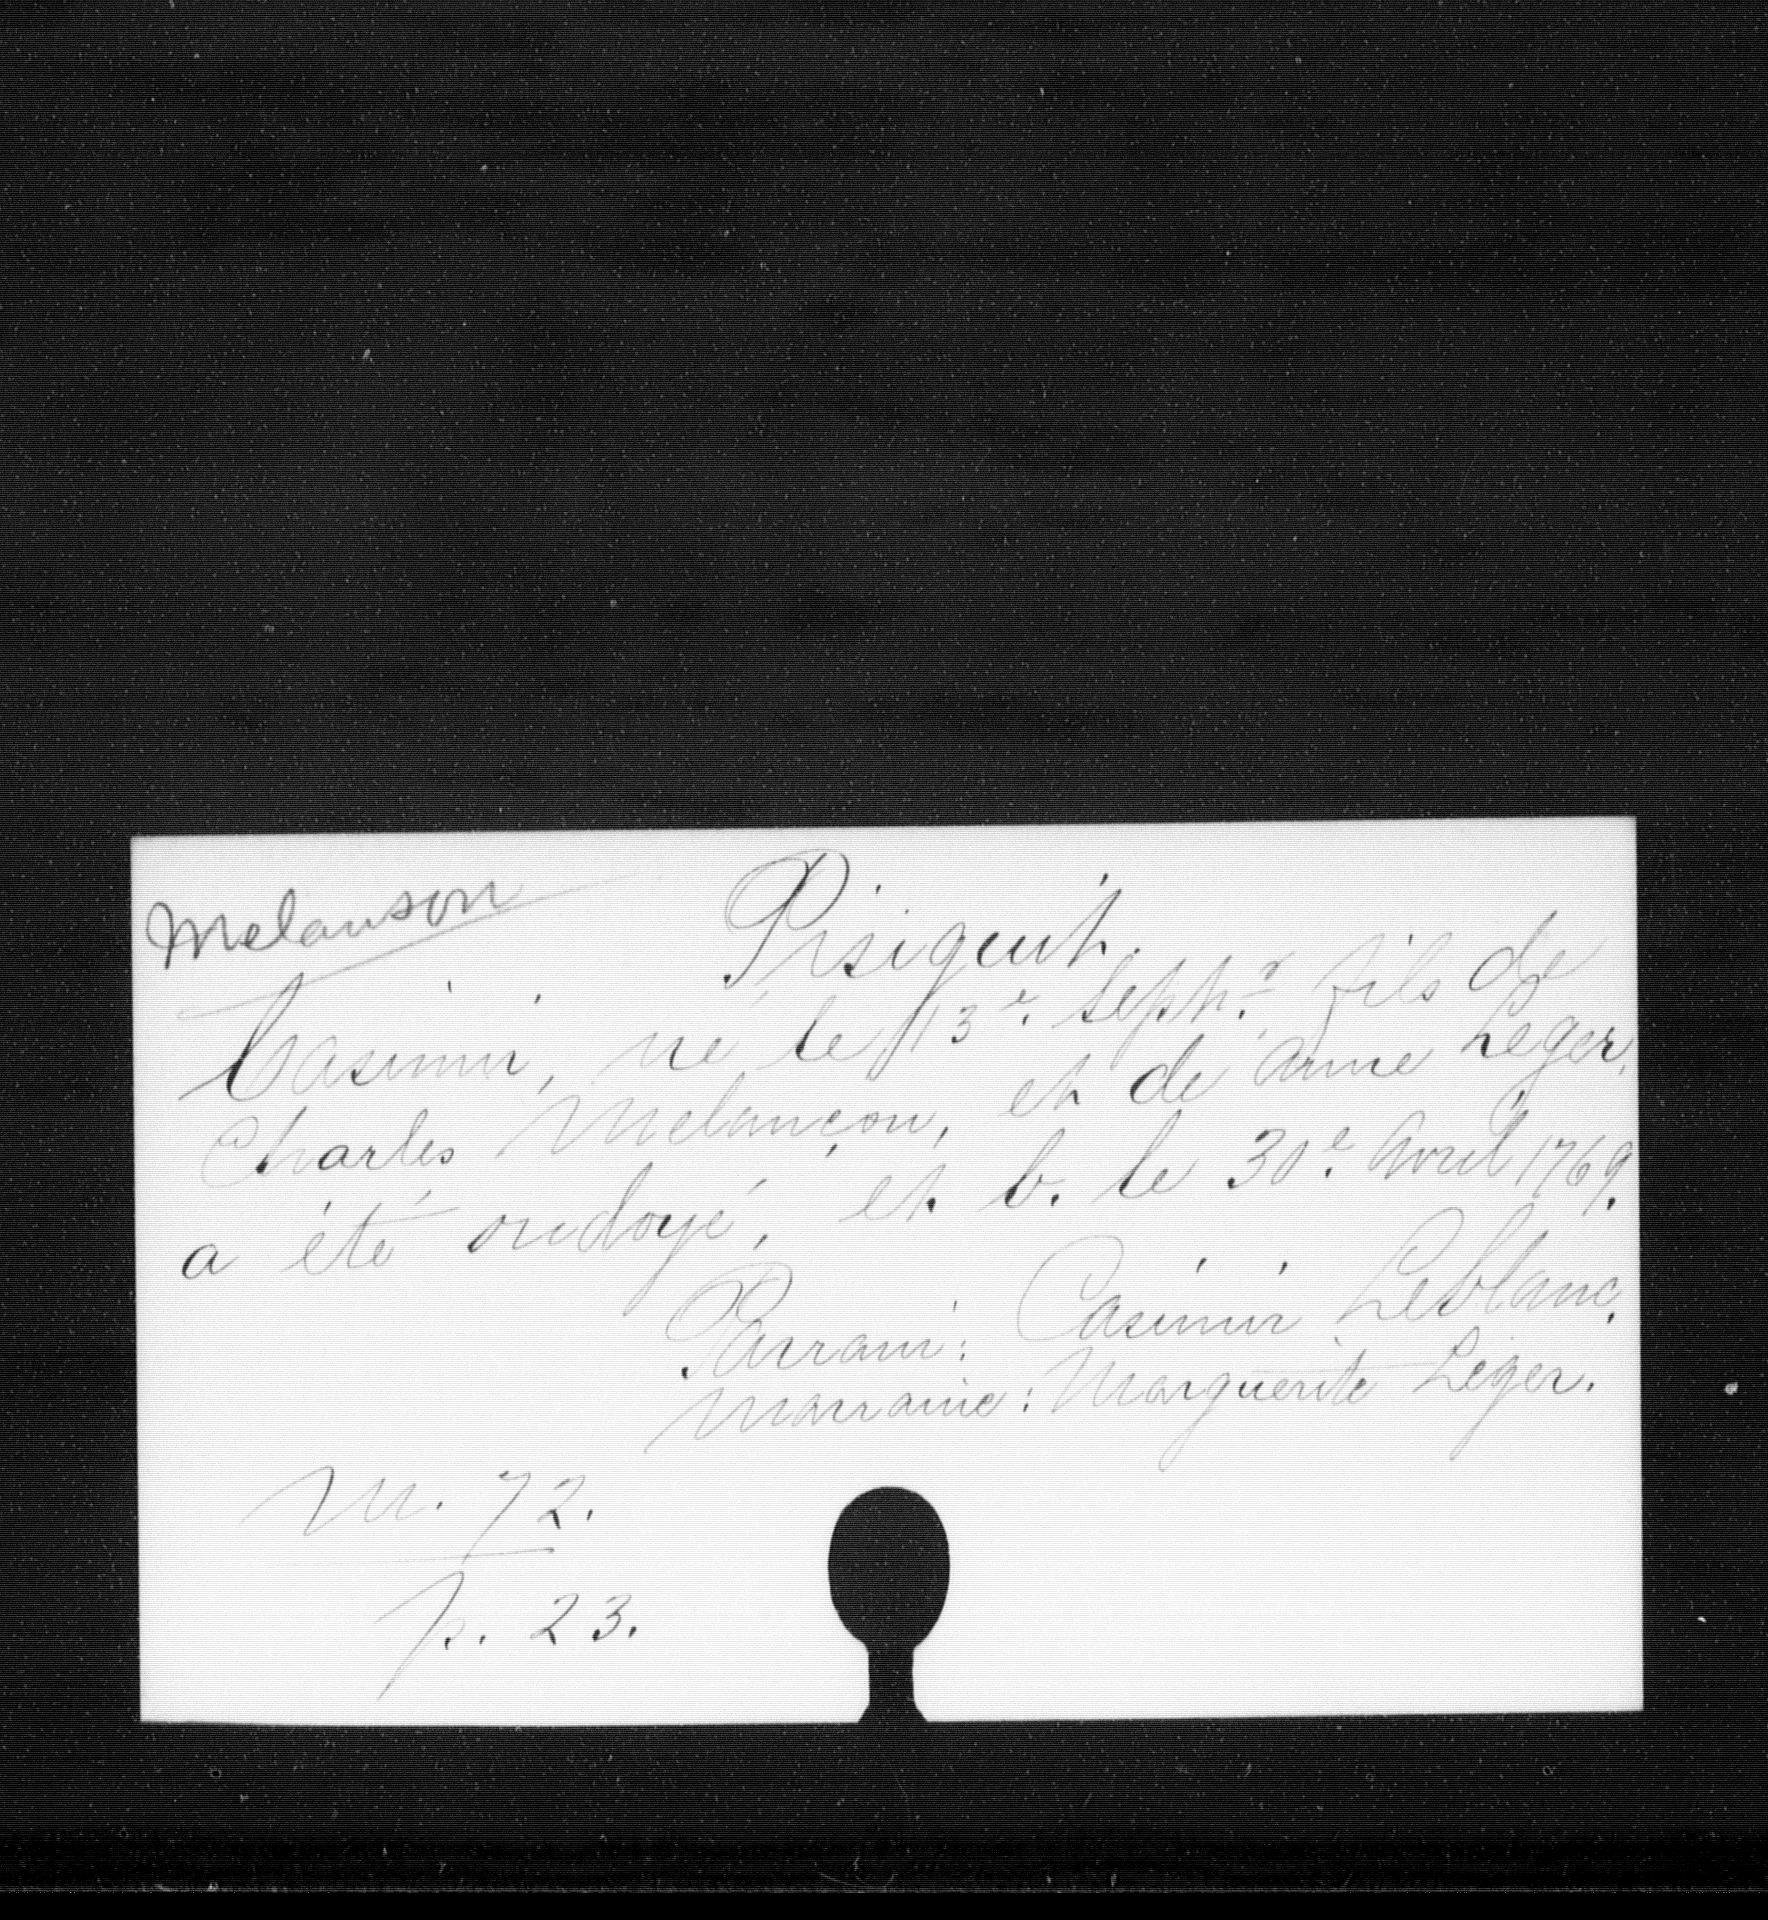 Melanson
Pisiguit.
Casimir, né le 13e. Sept.r fils de
Charles Melançon, et de Anne Leger,
a été ondoyé, et b. le 30.e Avril 1769.
Parrain: Casimir LeBlanc.
Marraine: Marguerite Léger.
M. 72.
p. 23.